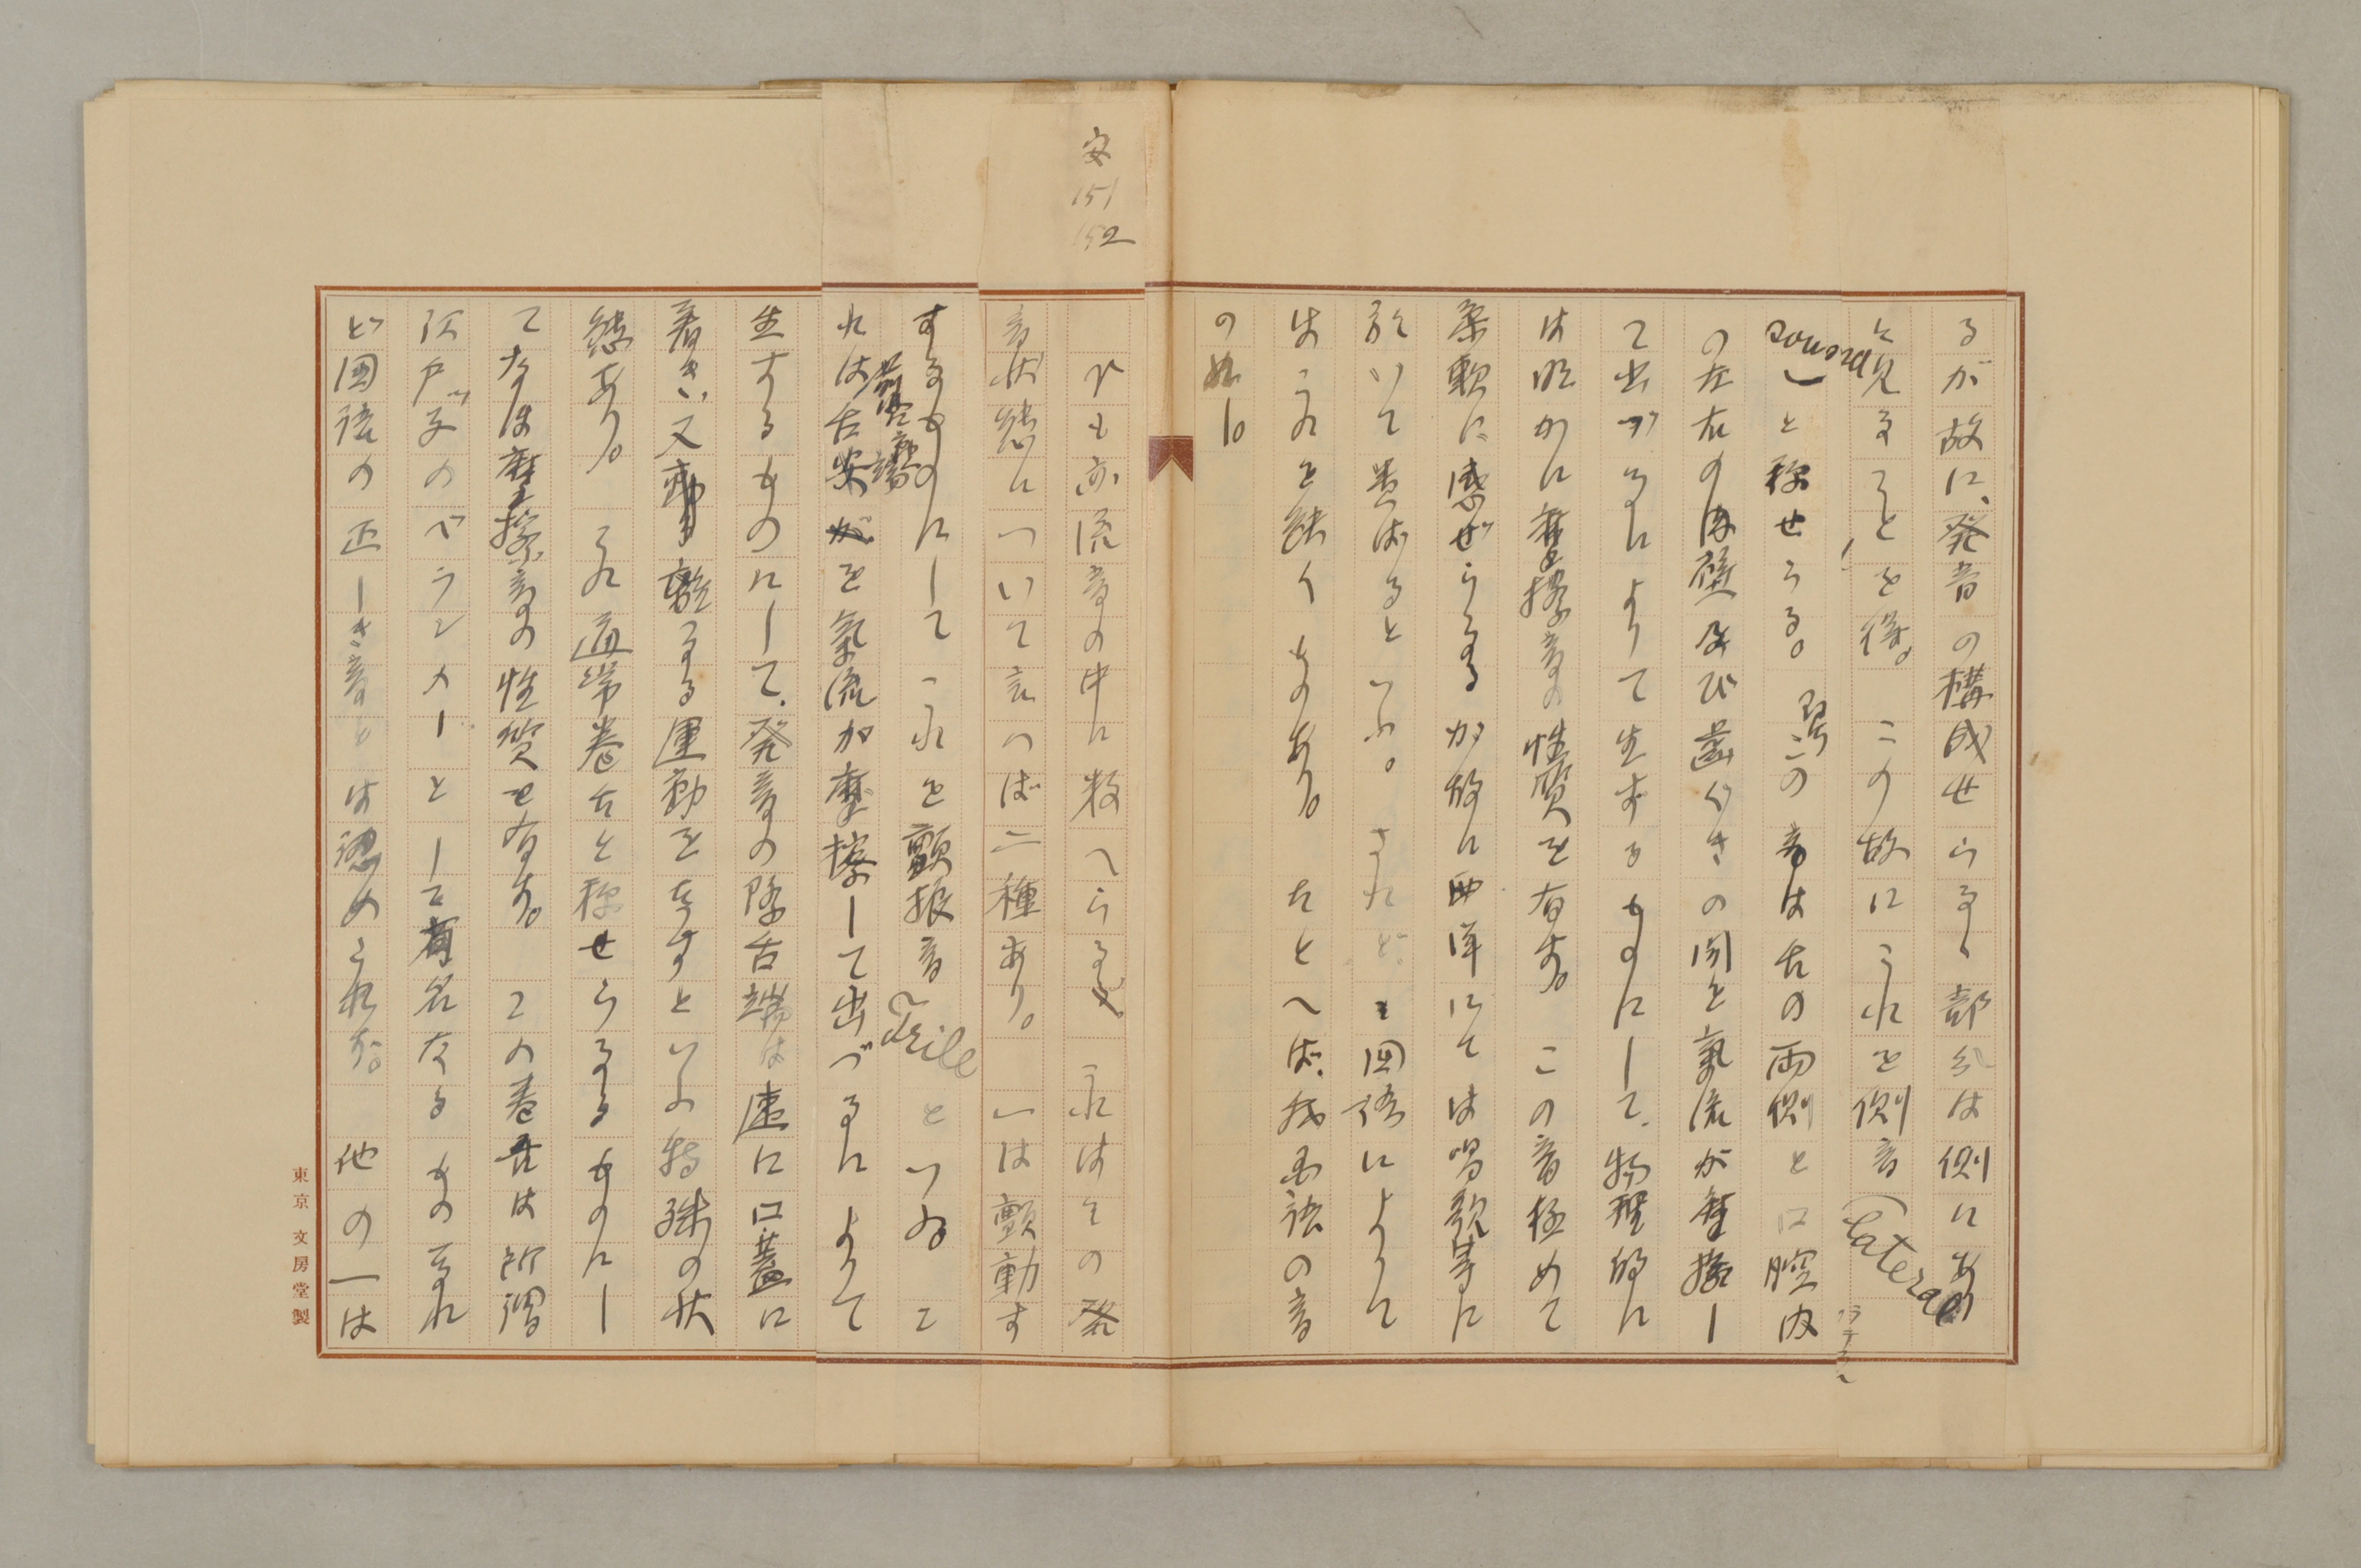 るが故に、発音の構成せらるゝ部分は側にあり
と見ることを得。この故にこれを側音(lateral
ラテラル
sound)と称せらる。
この音は舌の両側と口腔内
の左右の内壁及び歯ぐきの間を氣流が摩擦し
て出づるによりて生ずるものにして、物理的に
は明かに摩擦音の性質を有す。この音極めて
柔軟に感ぜらるるが故に西洋にては唱歌等に
於いて貴ばるといふ。されど、国語によりて
はこれを缺くものあり。たとへば、我国語の音
の如し。
安
151
152
rも亦流音の中に数へらる。これはその発
音状態について言へば二種あり。一は顫動す
するものにしてこれを顫振音といふ。こ
れは舌尖を氣流が摩擦して出づるによりて
生ずるものにして、発音の際舌端は速に口蓋に
着き、又離るる運動をなすといふ特殊の状
態あり。これ通常巻舌と称せらるるものにし
てなほ摩擦音の性質を有す。この巻舌は所謂
江戸ッ子のベランメーとして有名なるもの、され
ど国語の正しき音とは認められず。他の一は
東京 文房堂製